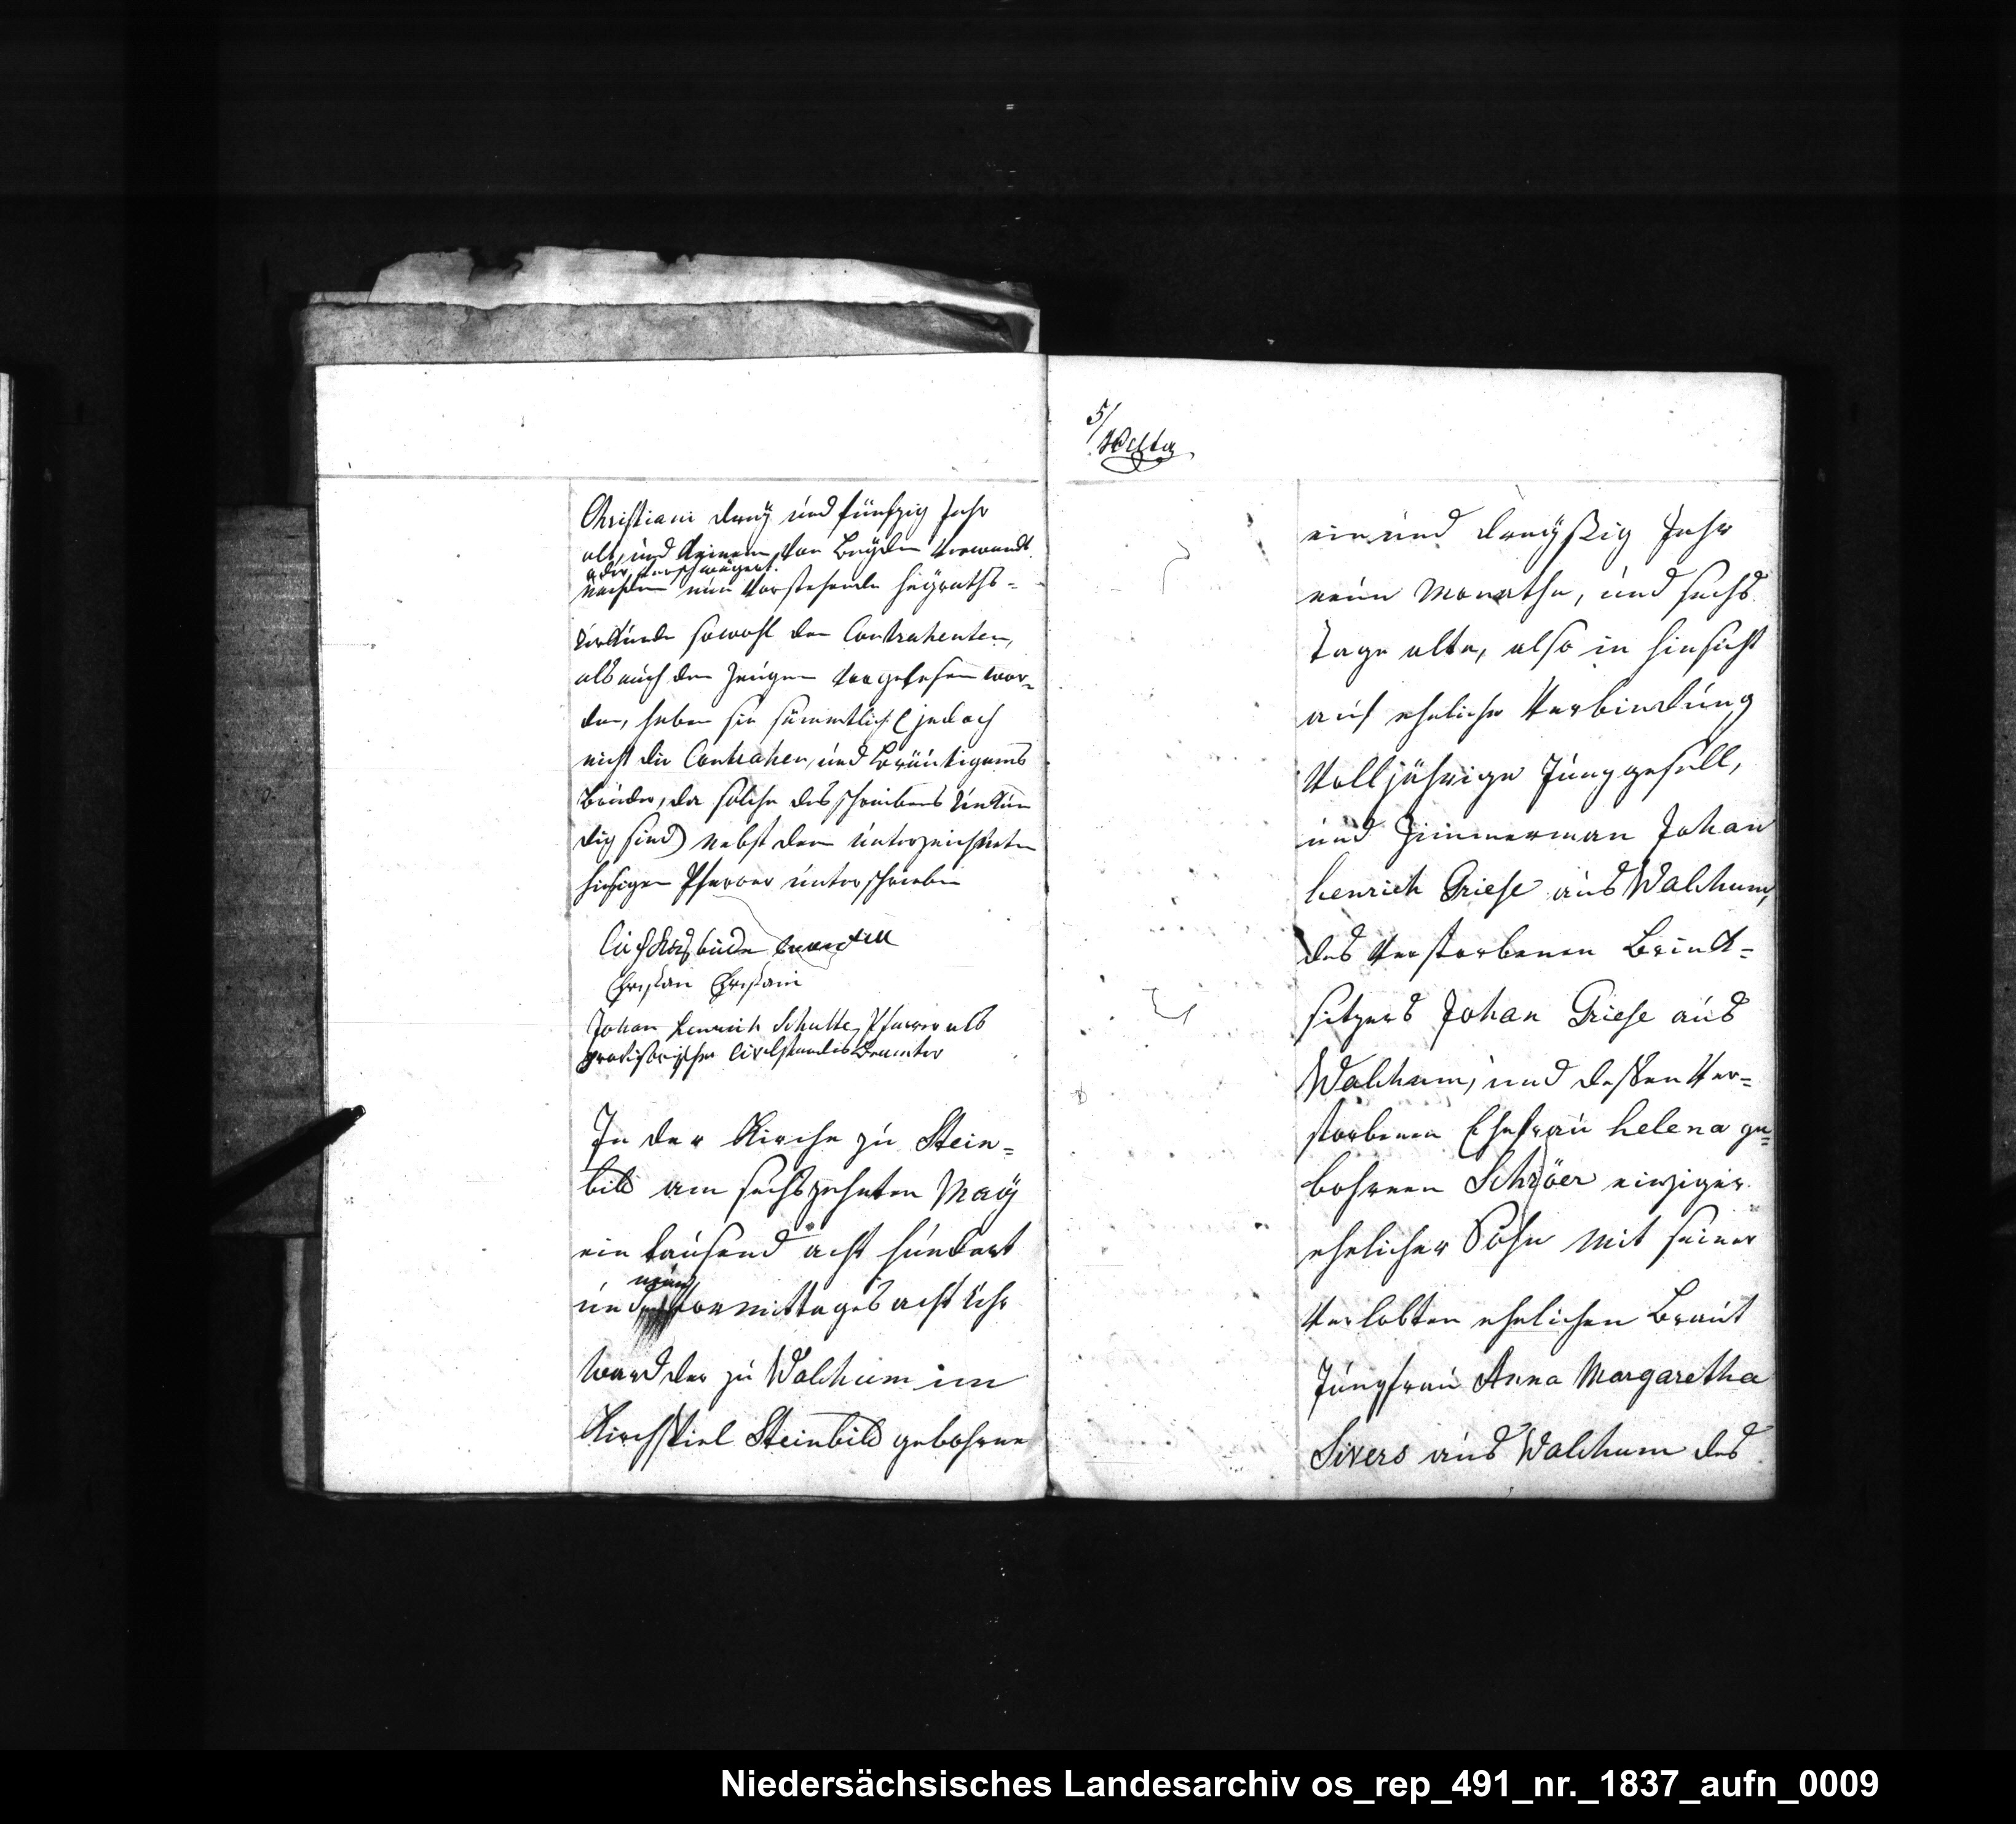 Christiani dreÿ und fünfzig Jahr
alt, und keinem von beÿden verwandt
oder verschwägert.
nachdem nun vorstehende heÿraths-
Urkunde sowohl den Contrahenten,
als auch den Zeugen vorgelesen wor-
den, haben sie sämmtlich (jedoch
nicht die Contrahen, und Bräutigams
Bruder, da solche des schreibens Unkün
dig sind) nebst dem unterzeichneten
hiesigen Pfarrer unterschrieben
Christian Christiani
Johan henrich Schulte, Pfarrer als
provisorischer Civilstandes Beamter
In der Kirche zu Stein=
bild am sechszehnten Maÿ
ein tausend acht hundert
neun
und vormittages acht Uhr
ward der zu Walchum im
Kirchspiel Steinbild gebohrne
5/
ein und dreÿßig Jahr
neun Monathe, und sechs
Tage alte, also in hinsicht
auf eheliche Verbindung
Volljährige Junggesell,
und Zimmerman Johan
henrich Griese aus Walchum,
des verstorbenen Brink=
sitzers Johan Griese aus
Walchum, und dessen Ver=
storbenen Ehefrau helena ge=
bohrnen Schröer einziger
ehelicher Sohn mit seiner
Verlobten ehelichen Braut
Jungfrau Anna Margaretha
Sivers aus Walchum des
Niedersächsisches Landesarchiv os_rep_491_nr._1837_aufn_0009